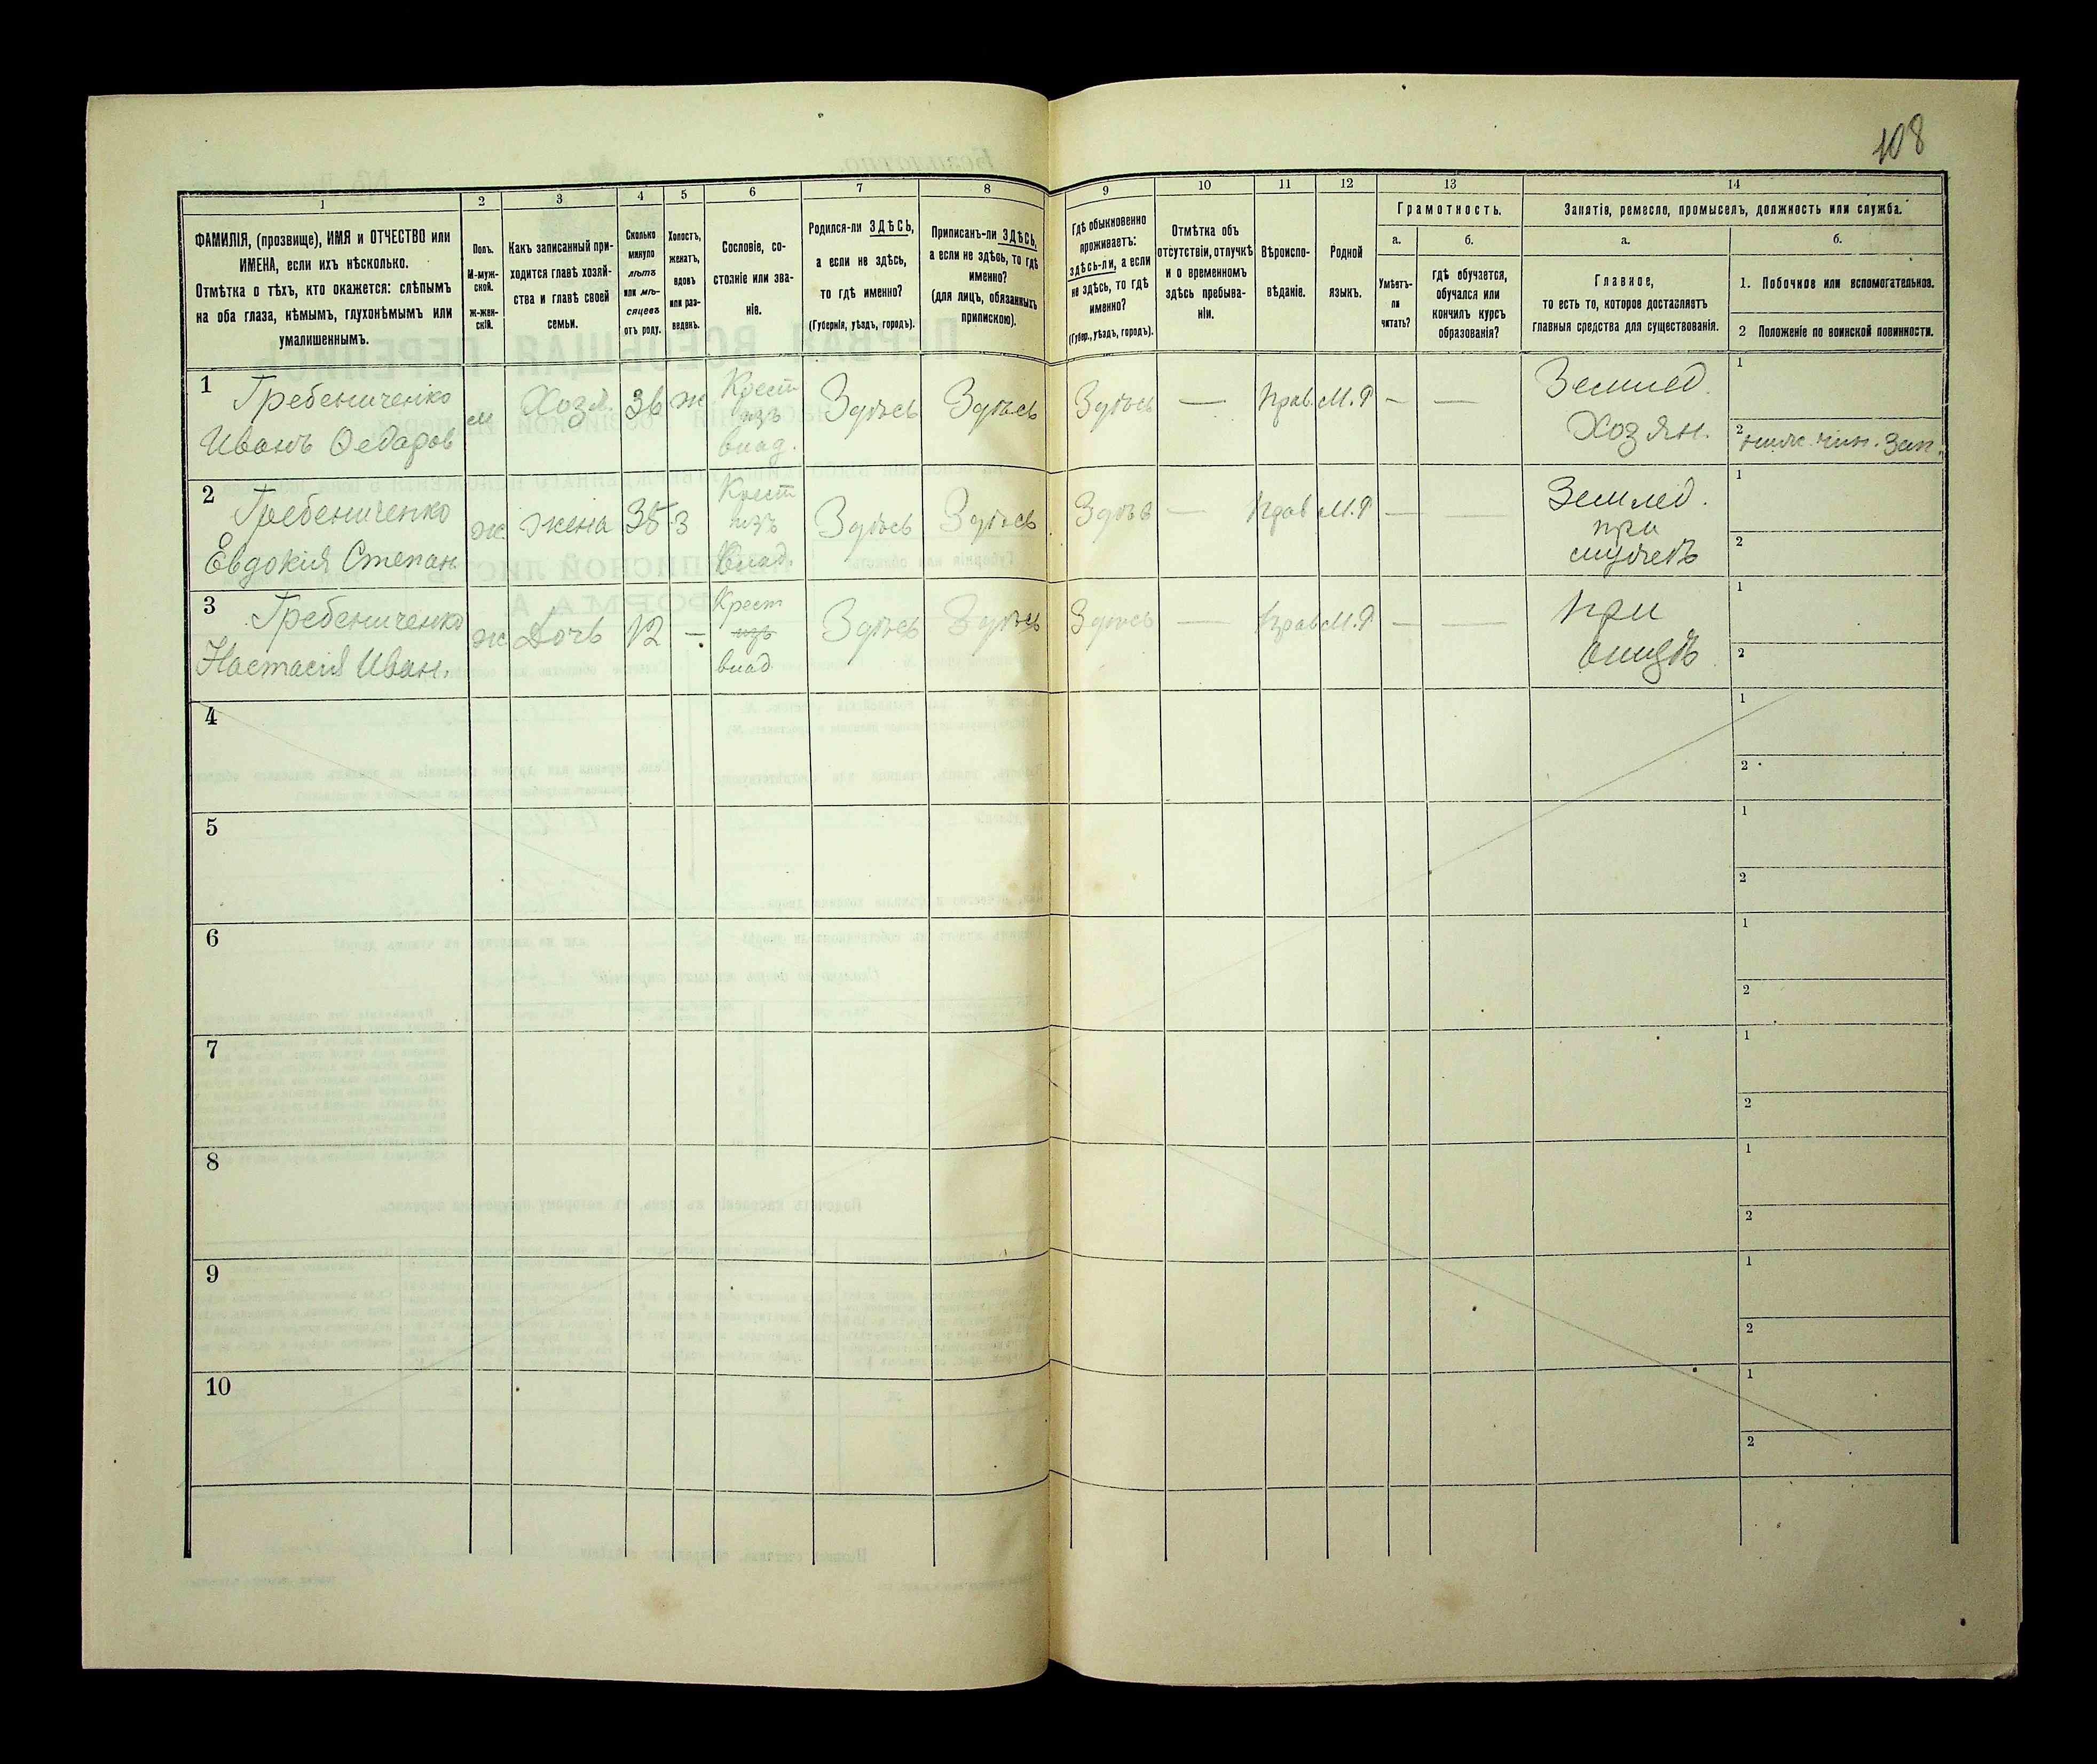 108
1
2
3
4
5
6
7
8
9
10
11
12
13
14
ФАМИЛІЯ, (прозвище), ИМЯ и ОТЧЕСТВО или
ИМЕНА, если ихъ нѣсколько.
Отмѣтка о тѣхъ, кто окажется: слѣпымъ
на оба глаза, нѣмымъ, глухонѣмымъ или
умалишеннымъ.
Полъ.
М-муж-
ской.
Ж-жен-
скій.
Какъ записанный при-
ходится главѣ хозяй-
ства и главѣ своей
семьи.
Сколько
минуло
лѣтъ
или мѣ-
сяцевъ
отъ роду.
Холостъ,
женатъ,
вдовъ
или раз-
веденъ.
Сословіе, со-
стояніе или зва-
ніе.
Родился-ли ЗДѢСЬ,
а если не здѣсь,
то гдѣ именно?
(Губернія, уѣздъ, городъ).
Приписанъ-ли ЗДѢСЬ,
а если не здѣсь, то гдѣ
именно?
(для лицъ, обязанныхъ
припискою).
Гдѣ обыкновенно
проживаетъ:
здѣсь-ли, а если
не здѣсь, то гдѣ
именно?
(Губер., уѣздъ, городъ).
Отмѣтка объ
отсутствіи, отлучкѣ
и о временномъ
здѣсь пребыва-
ніи.
Вѣроиспо-
вѣданіе.
Родной
языкъ.
Грамотность.
а.
Умѣетъ-
ли
читать?
б.
гдѣ обучается,
обучался или
кончилъ курсъ
образованія?
Занятіе, ремесло, промыселъ, должность или служба.
а.
Главное,
то есть то, которое доставляетъ
главныя средства для существованія.
б.
1. Побочное или вспомогательное.
2 Положеніе по воинской повинности.
1
Гребениченко
Иванъ Федоров
м
Хозя.
36
ж
Крест
изъ
влад.
Здѣсь
Здѣсь
Здѣсь
—
Прав.
М.Р
—
—
Землед.
Хозян.
1
2
ниж. чин. Зап.
2
Гребениченко
Евдокія Степан
ж.
жена
35
з
Крест
изъ
Влад.
Здѣсь
Здѣсь
Здѣсь
—
Прав
М.Р
—
—
Землед.
при
мужѣ
1
2
3
Гребениченко
Настасія Иван.
ж
Дочь
12
—
Крест
изъ
влад
Здѣсь
Здѣсь
Здѣсь
—
Прав
М.Р
—
—
При
отцѣ
1
2
4
1
2
5
1
2
6
1
2
7
1
2
8
1
2
9
1
2
10
1
2